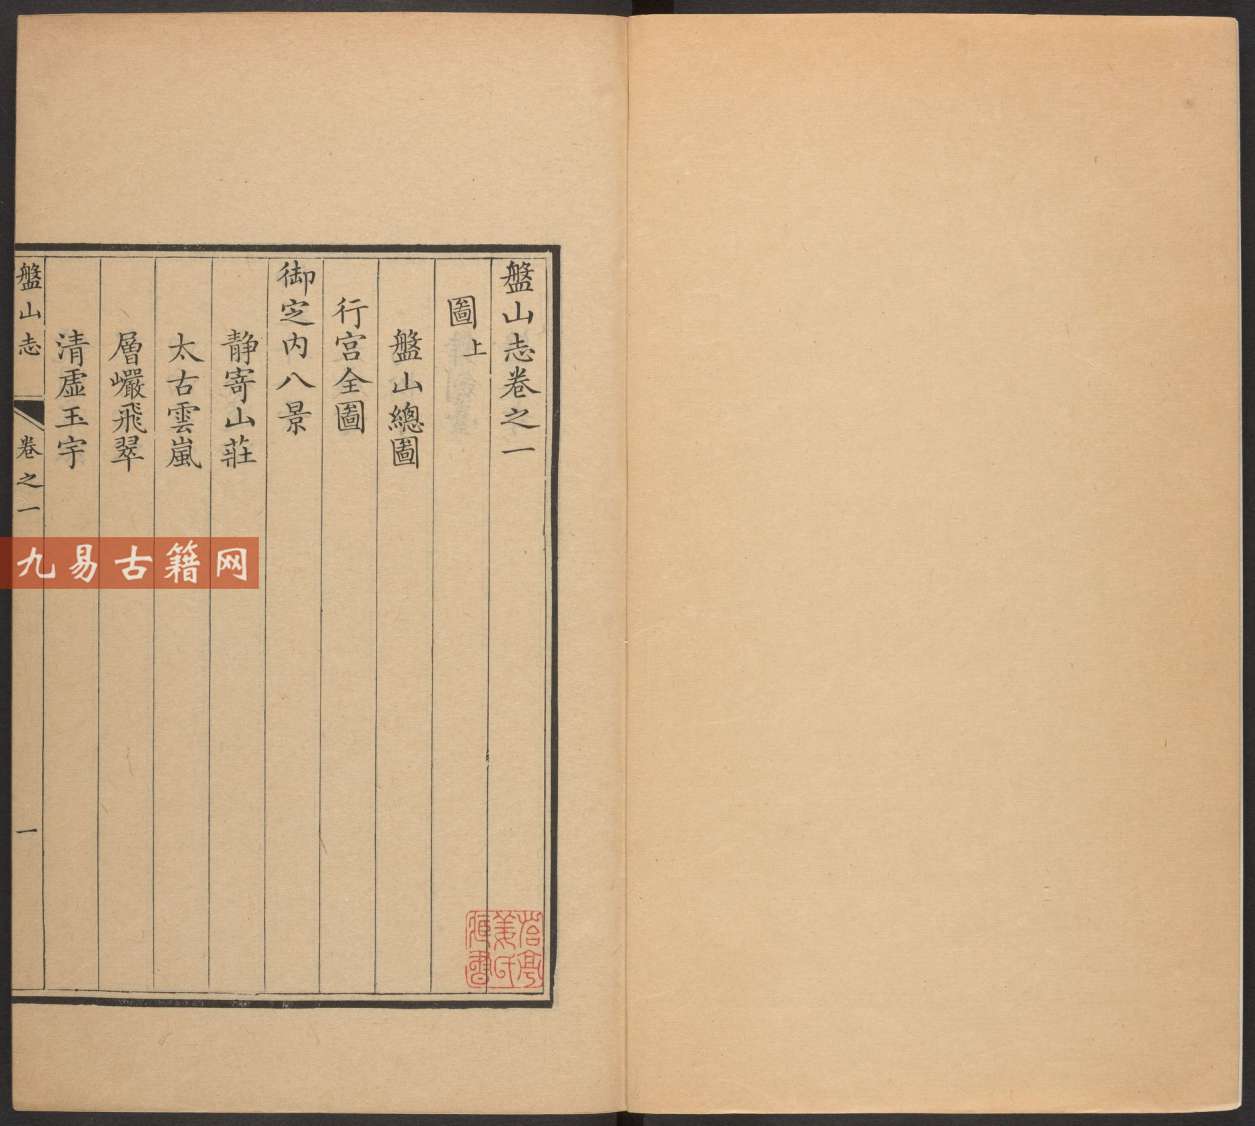 盤山志卷之一
圖上
盤山總圖
行宮全圖
御定內八景
靜寄山莊
太古雲嵐
層巘飛翠
清虛玉宇
盤山志
卷之一
一
九易古籍网
姜氏